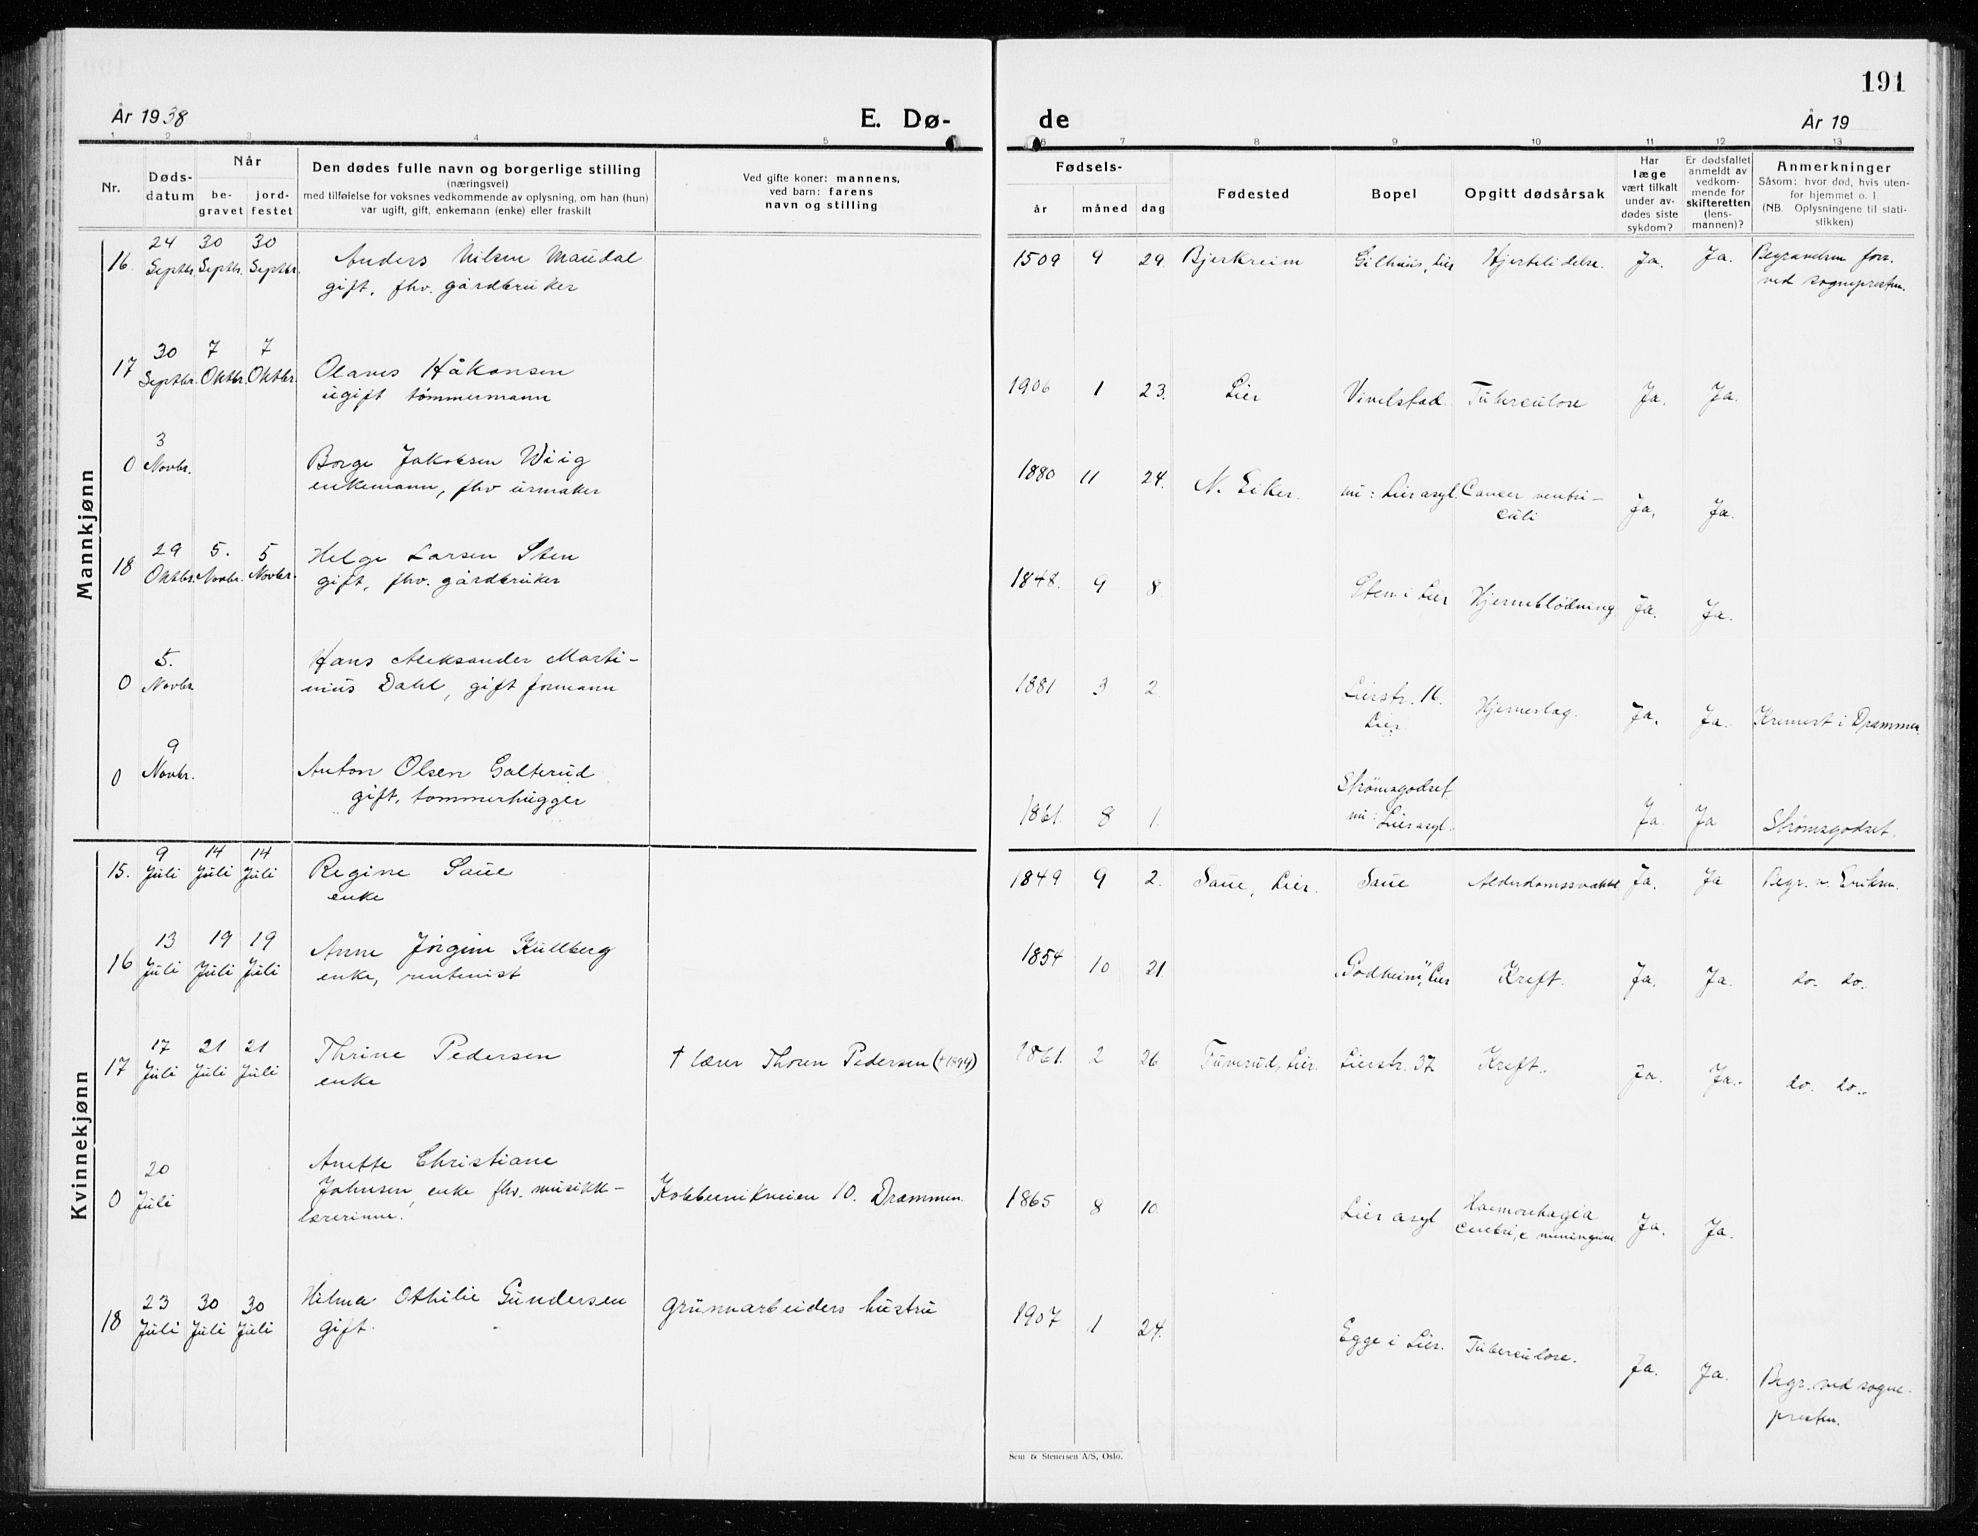 191
År 1938
E. Dø-
de
År 19
1 2 3 4 5
6 7 8 9 10 11 12 13
Nr.
Døds-
datum
Når
be-
gravet
jord-
festet
Den dødes fulle navn og borgerlige stilling
(næringsvei)
med tilføielse for voksnes vedkommende av oplysning, om han (hun)
var ugift, gift, enkemann (enke) eller fraskilt
Ved gifte koner: mannens,
ved barn: farens
navn og stilling
Fødsels-
år måned dag
Fødested
Bopel
Opgitt dødsårsak
Har
læge
vært tilkalt
under av-
dødes siste
sykdom?
Er dødsfallet
anmeldt av
vedkom-
mende for
skifteretten
(lens-
mannen)?
Anmerkninger
Såsom: hvor død, hvis uten-
for hjemmet o. l
(NB. Oplysningene til stati-
stikken)
Mannkjønn
16. 24 Septbr. 30 Septbr. 30 Septbr.
Anders Nilsen Maudal
gift, fhv. gårdbruker
1509 9 29. Bjerkreim Gilhuus, Lier Hjertelidelse. Ja. Ja.
ved sognepresten.
17 30 Septbr. 7 Oktbr. 7 Oktbr.
Olaves Håkonsen
ugift tømmermann
1906 1 23. Lier Vivelstad. Tuberculose Ja. Ja.
0 3 Novbr.
Borge Jakobsen Wiig
enkemann, fhv urmaker
1880 11 24. N. Eiker. nu: Lier asyl. Cancer ventri-
culi Ja. Ja.
18 29 Oktbr. 5. Novbr. 5 Novbr.
Helge Larsen Sten
gift, fhv. gårdbruker
1848. 9 8. Sten i Lier Hjerneblödning Ja. Ja.
0 5. Novbr.
Hans Aleksander Marti-
nius Dahl, gift formann
1881 3 2 Lierstr. 16.
Lier. Hjerneslag. Ja. Ja. Kremert i Drammen
0 9 Novbr.
Anton Olsen Golterud
gift, tømmerhugger
1861. 8 1. Strømsgodset
nu: Lier asyl. Ja. Ja Strømsgodset.
Kvinnekjønn
15. 9 Juli 14 Juli 14 Juli
Regine Saue
enke
1849 9 2. Saue, Lier. Saue Alderdomssvakhet Ja. Ja Begr. v. Eriksen.
16 13 Juli 19 Juli 19 Juli
Anne Jörgine Kullberg
enke, rentenist
1854 10 21. "Godheim", Lier Kreft. Ja. Ja. do. do.
17 17 Juli 21 Juli 21 Juli
Thrine Pedersen
enke
† lærer Thoren Pedersen († 1894)
1861. 2 26 Tuverud, Lier. Lierstr. 37 Kreft. Ja. Ja. do. do.
0 20 Juli
Anette Christiane
Johnsen, enke fhv. musikk-
lærerinne.
10. Drammen.
1865 8 10. Lier asyl Haemorrhagia
cerebri, Ja. Ja.
18 23 Juli 30 Juli 30 Juli
Hilma Othilie Gundersen
gift.
Grünnarbeiders hustru
1907 1 24. Egge i Lier. Tuberculose. Ja. Ja. Begr. ved sogne-
presten.
Sem & Stenersen A/S, Oslo.